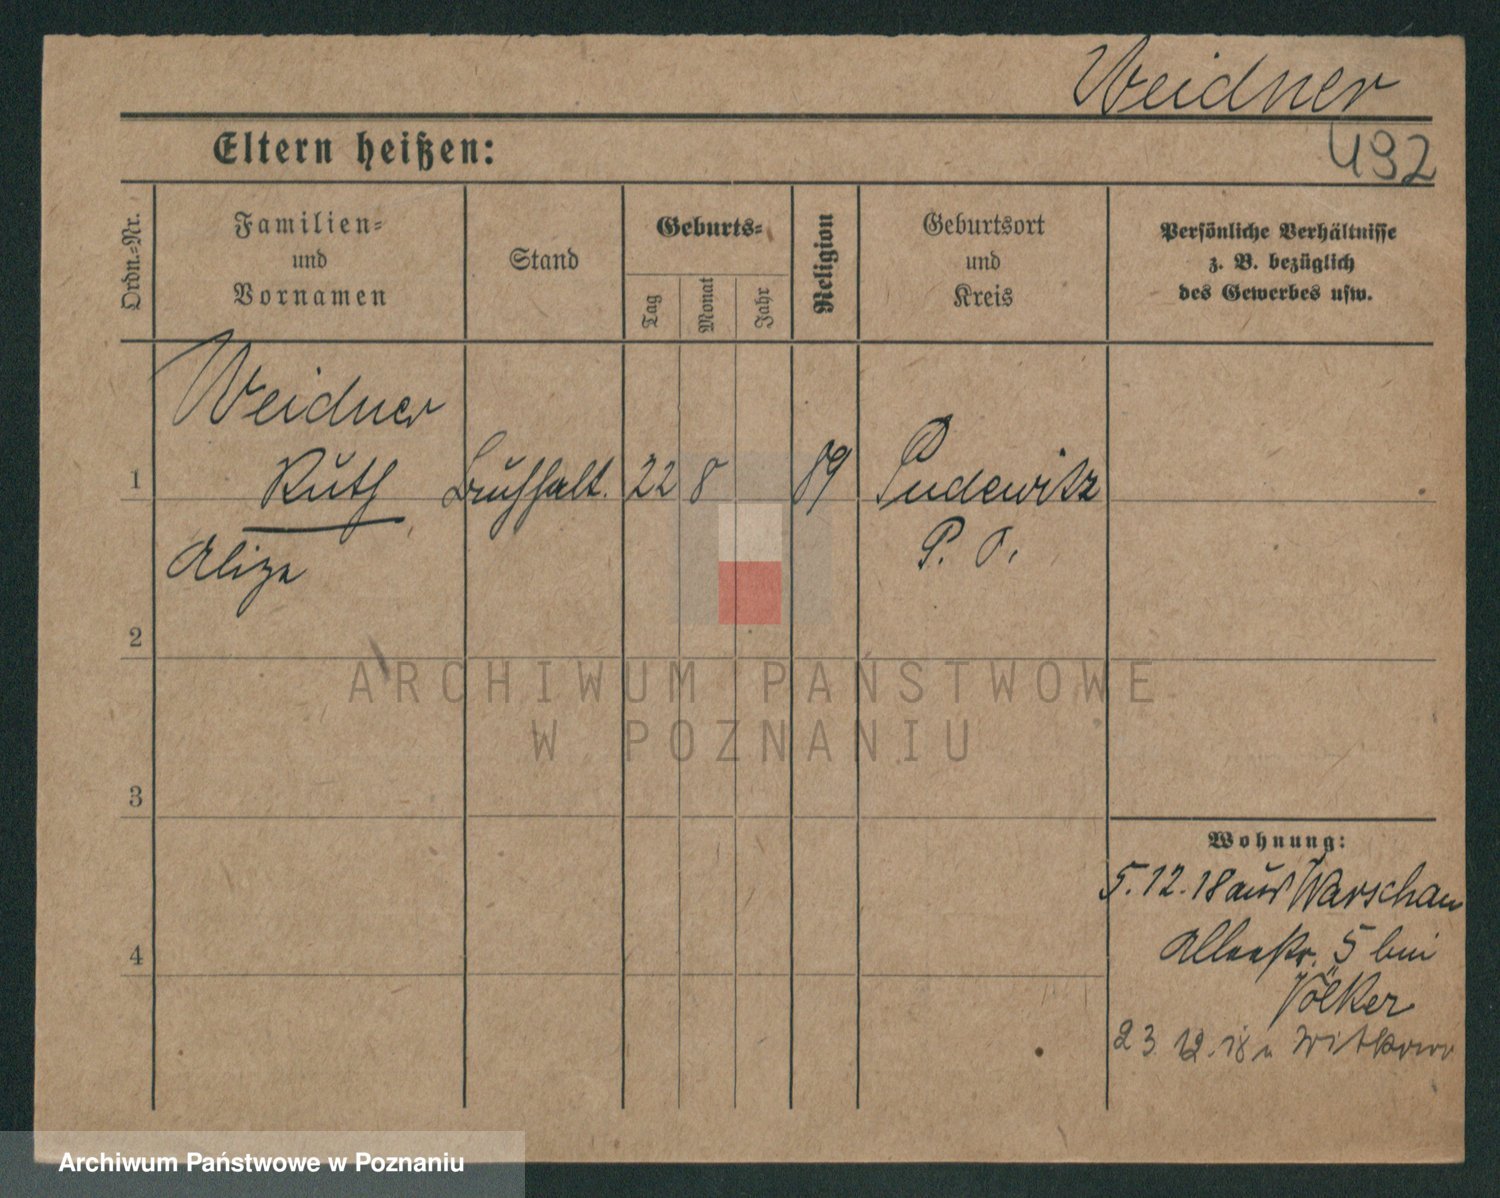 Weidner
Eltern heißen:
492
Ordn.-Nr.
Familien-
und
Vornamen
Stand
Geburts-
Tag
Monat
Jahr
Religion
Geburtsort
und
Kreis
Persönliche Verhältnisse
z. B. bezüglich
des Gewerbes usw.
Weidner
1 Ruth Buchhalt. 22 8 89 Pudewitz
Alize P. O.
2
3
4
ARCHIWUM PAŃSTWOWE
W POZNANIU
Wohnung:
5.12.18 aus Warschau
Alleestr. 5 bei
Völker
23 12.18 n Witkowo
Archiwum Państwowe w Poznaniu